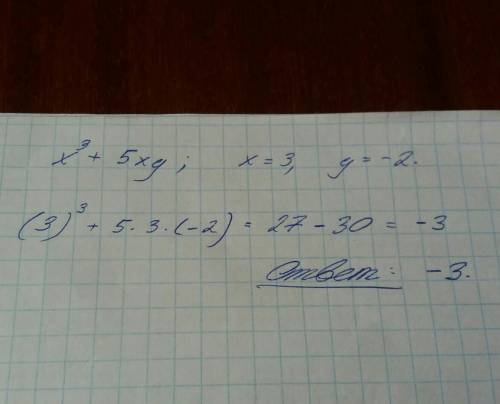 x³ + 5xy; x = 3, y = -2.
(3)³ + 5·3·(-2) = 27 - 30 = -3
Ответ: -3.